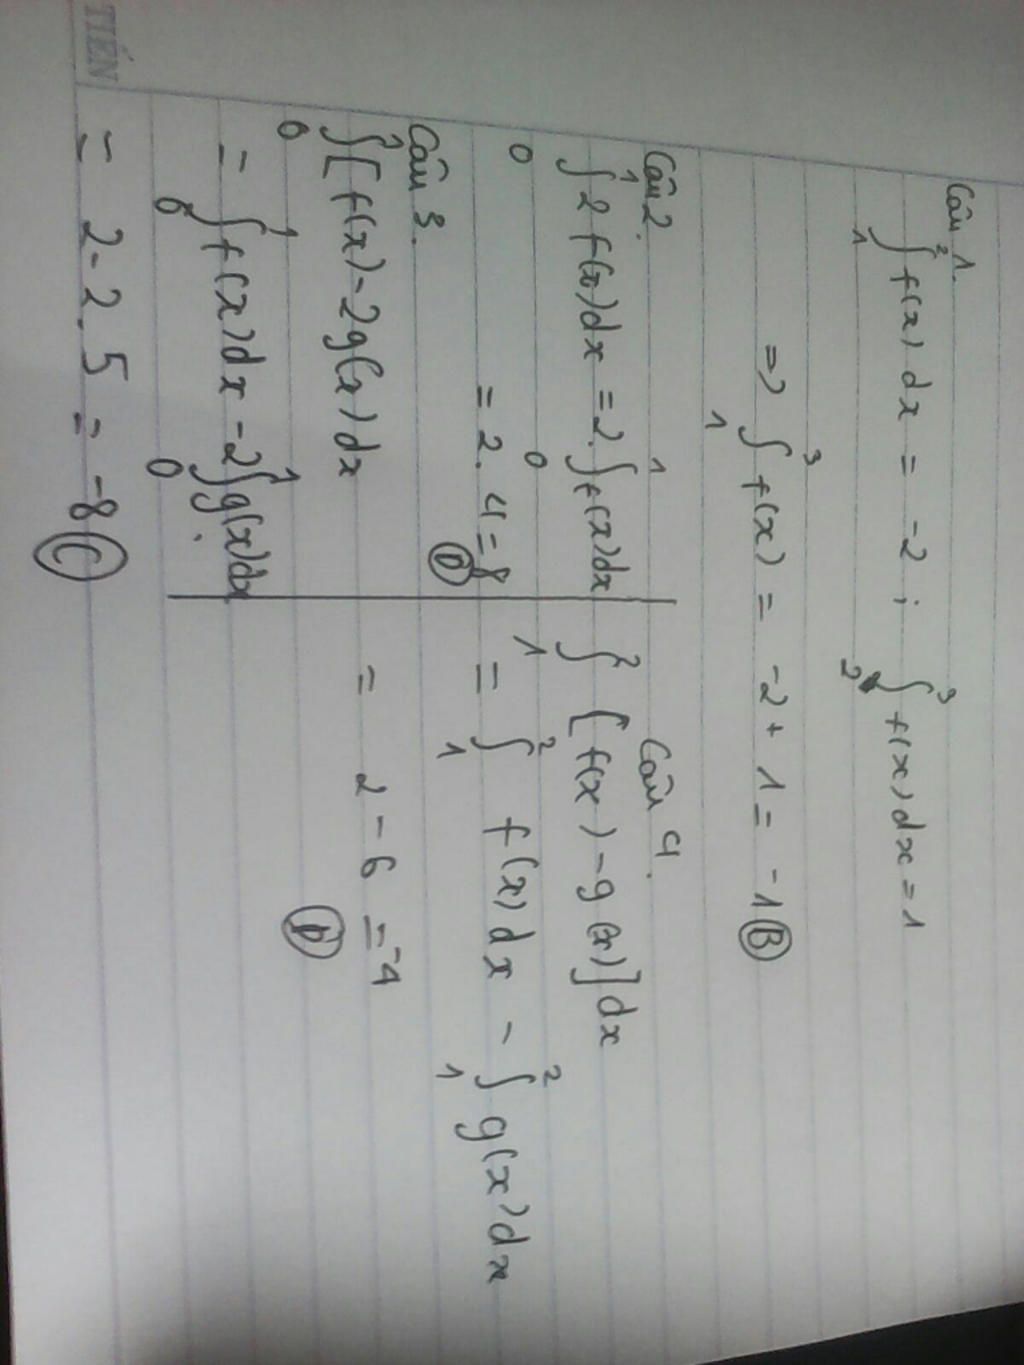 TIẾN
Câu 1.
∫₁² f(x) dx = -2 ; ∫₂³ f(x) dx = 1
=> ∫₁³ f(x) = -2 + 1 = -1 (B)
Câu 2.
∫₀¹ 2 f(x) dx = 2. ∫₀¹ f(x) dx
= 2 . 4 = 8
(D)
Câu 3.
∫₀¹ [f(x) - 2g(x) dx
= ∫₀¹ f(x) dx - 2 ∫₀¹ g(x) dx.
= 2 - 2 . 5 = -8 (C)
Câu 4.
∫₁² [f(x) - g(x)] dx
= ∫₁² f(x) dx - ∫₁² g(x) dx
= 2 - 6 = -4